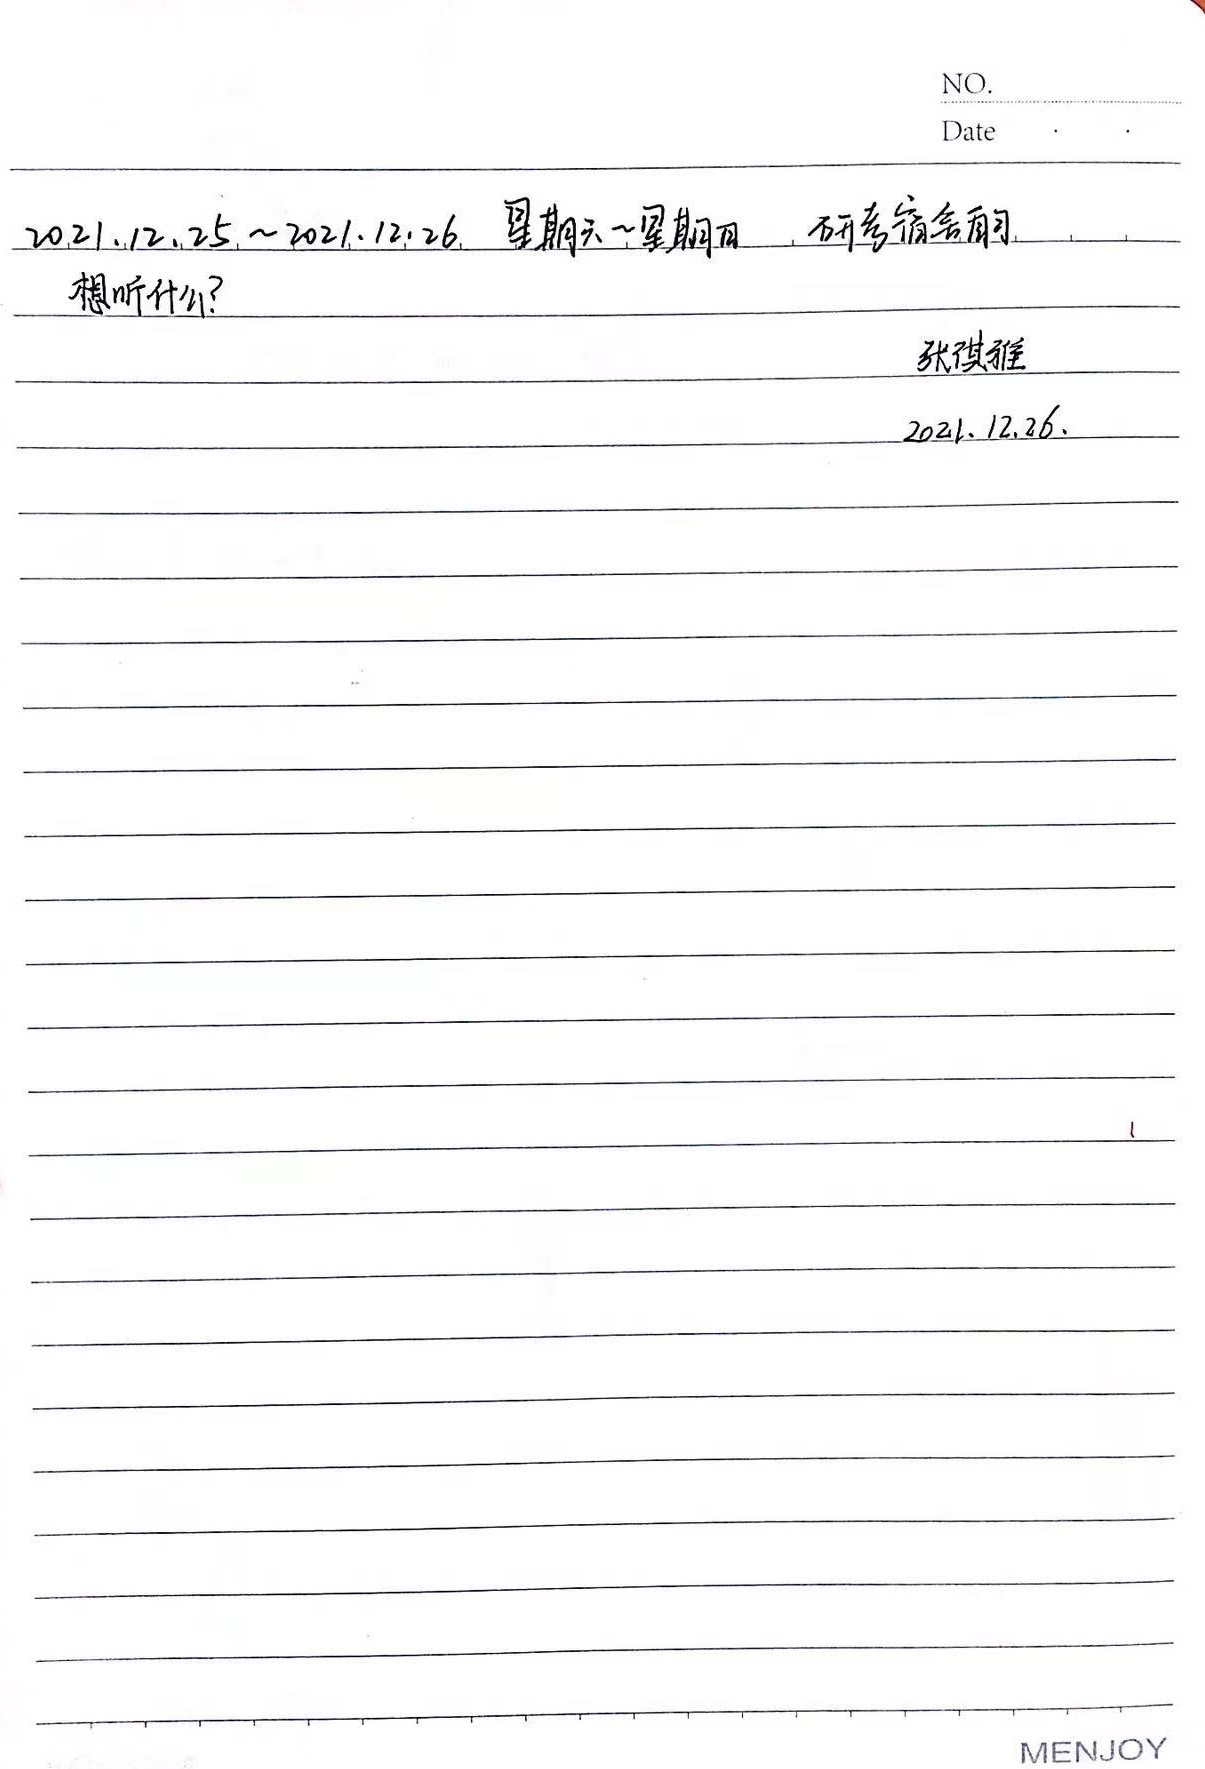 NO.
Date
2021.12.25~2021.12.26 星期六~星期日 研考宿舍
想听什么?
张祺雅
2021.12.26.
MENJOY